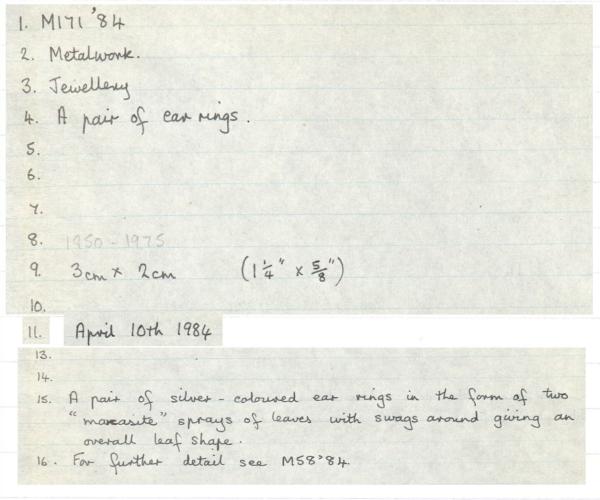 1. M171 '84
2. Metalwork.
3. Jewellery
4. A pair of ear rings.
5.
6.
7.
8. 1950 - 1975
9. 3cm x 2cm (1 1/4" x 5/8")
10.
11. April 10th 1984
13.
14.
15. A pair of silver-coloured ear rings in the form of two
"marcasite" sprays of leaves with swags around giving an
overall leaf shape.
16. For further detail see M58'84.